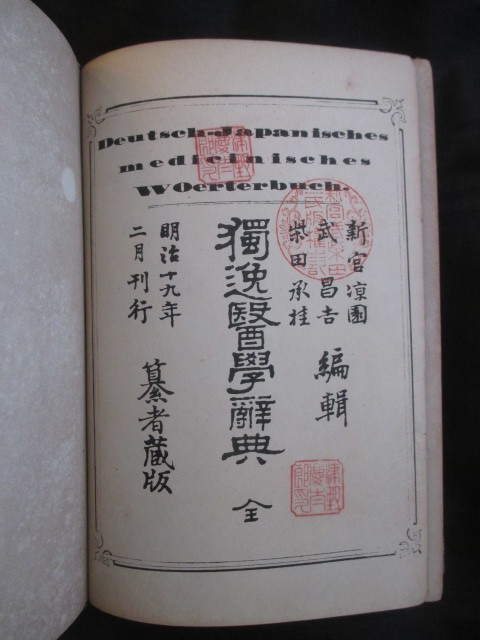 Deutsch-Japanisches
medicinisches
WOerterbuch.
新宮涼園
武昌吉
柴田承桂
編輯
獨逸醫學辭典 全
明治十九年
二月刊行
纂者蔵版